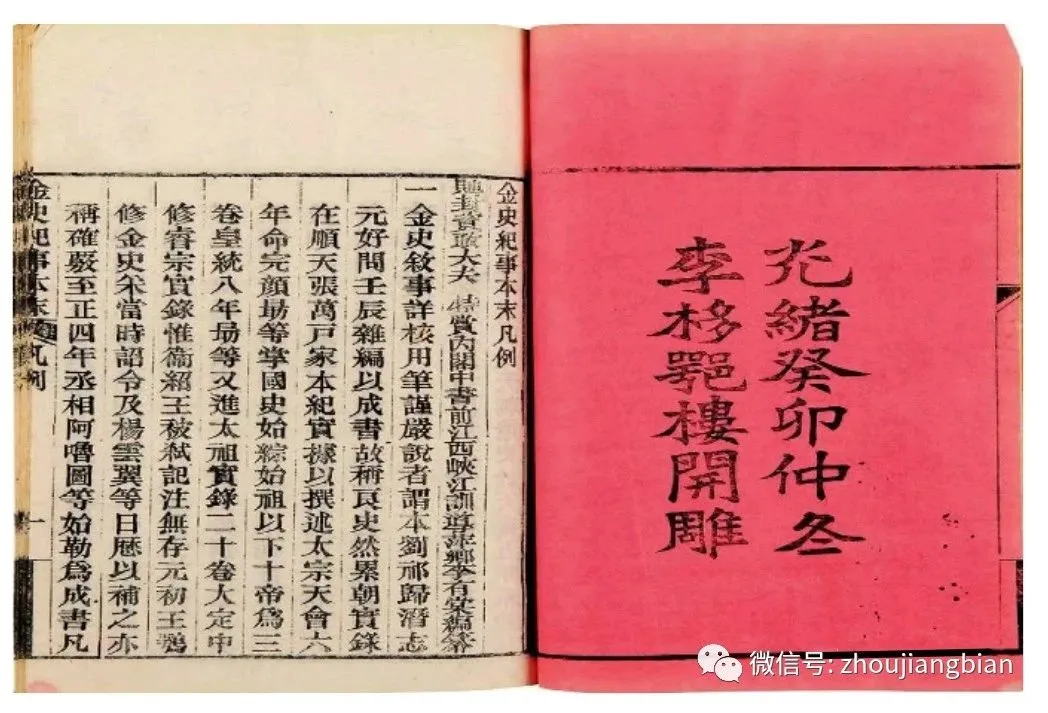 光緒癸卯仲冬
李栘鄂樓開雕
金史紀事本末凡例
賜封資政大夫 特賞內閣中書前江西峽江訓導萍鄉李有棠編纂
一金史敘事詳核用筆謹嚴說者謂本劉祁歸潛志
元好問壬辰雜編以成書故稱良史然累朝實錄
在順天張萬戸家本紀實據以撰述太宗天會六
年命完顏勗等掌國史始綜始祖以下十帝爲三
卷皇統八年勗等又進太祖實錄二十卷大定中
修睿宗實錄惟衞紹王被弑記注無存元初王鶚
修金史采當時詔令及楊雲翼等日曆以補之亦
稱確覈至正四年丞相阿嚕圖等始勒爲成書凡
金史紀事本末 凡例 一
微信号: zhoujiangbian